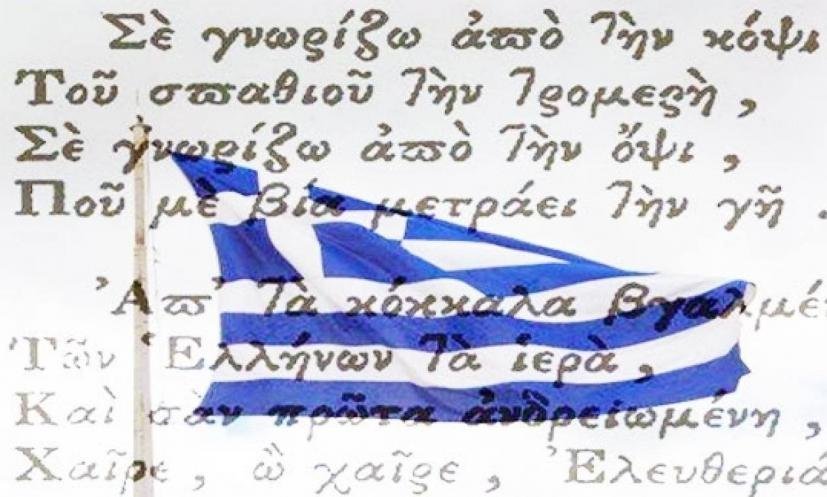 Σὲ γνωρίζω ἀπὸ τὴν κόψι
Τοῦ σπαθιοῦ τὴν τρομερὴ,
Σὲ γνωρίζω ἀπὸ τὴν ὄψι,
Ποῦ μὲ βία μετράει τὴν γῆ.
Ἀπ' τὰ κόκκαλα βγαλμέν
Τῶν Ἑλλήνων τὰ ἱερὰ,
Καὶ σὰν πρῶτα ἀνδρειωμένη,
Χαῖρε, ὢ χαῖρε, Ἐλευθεριά